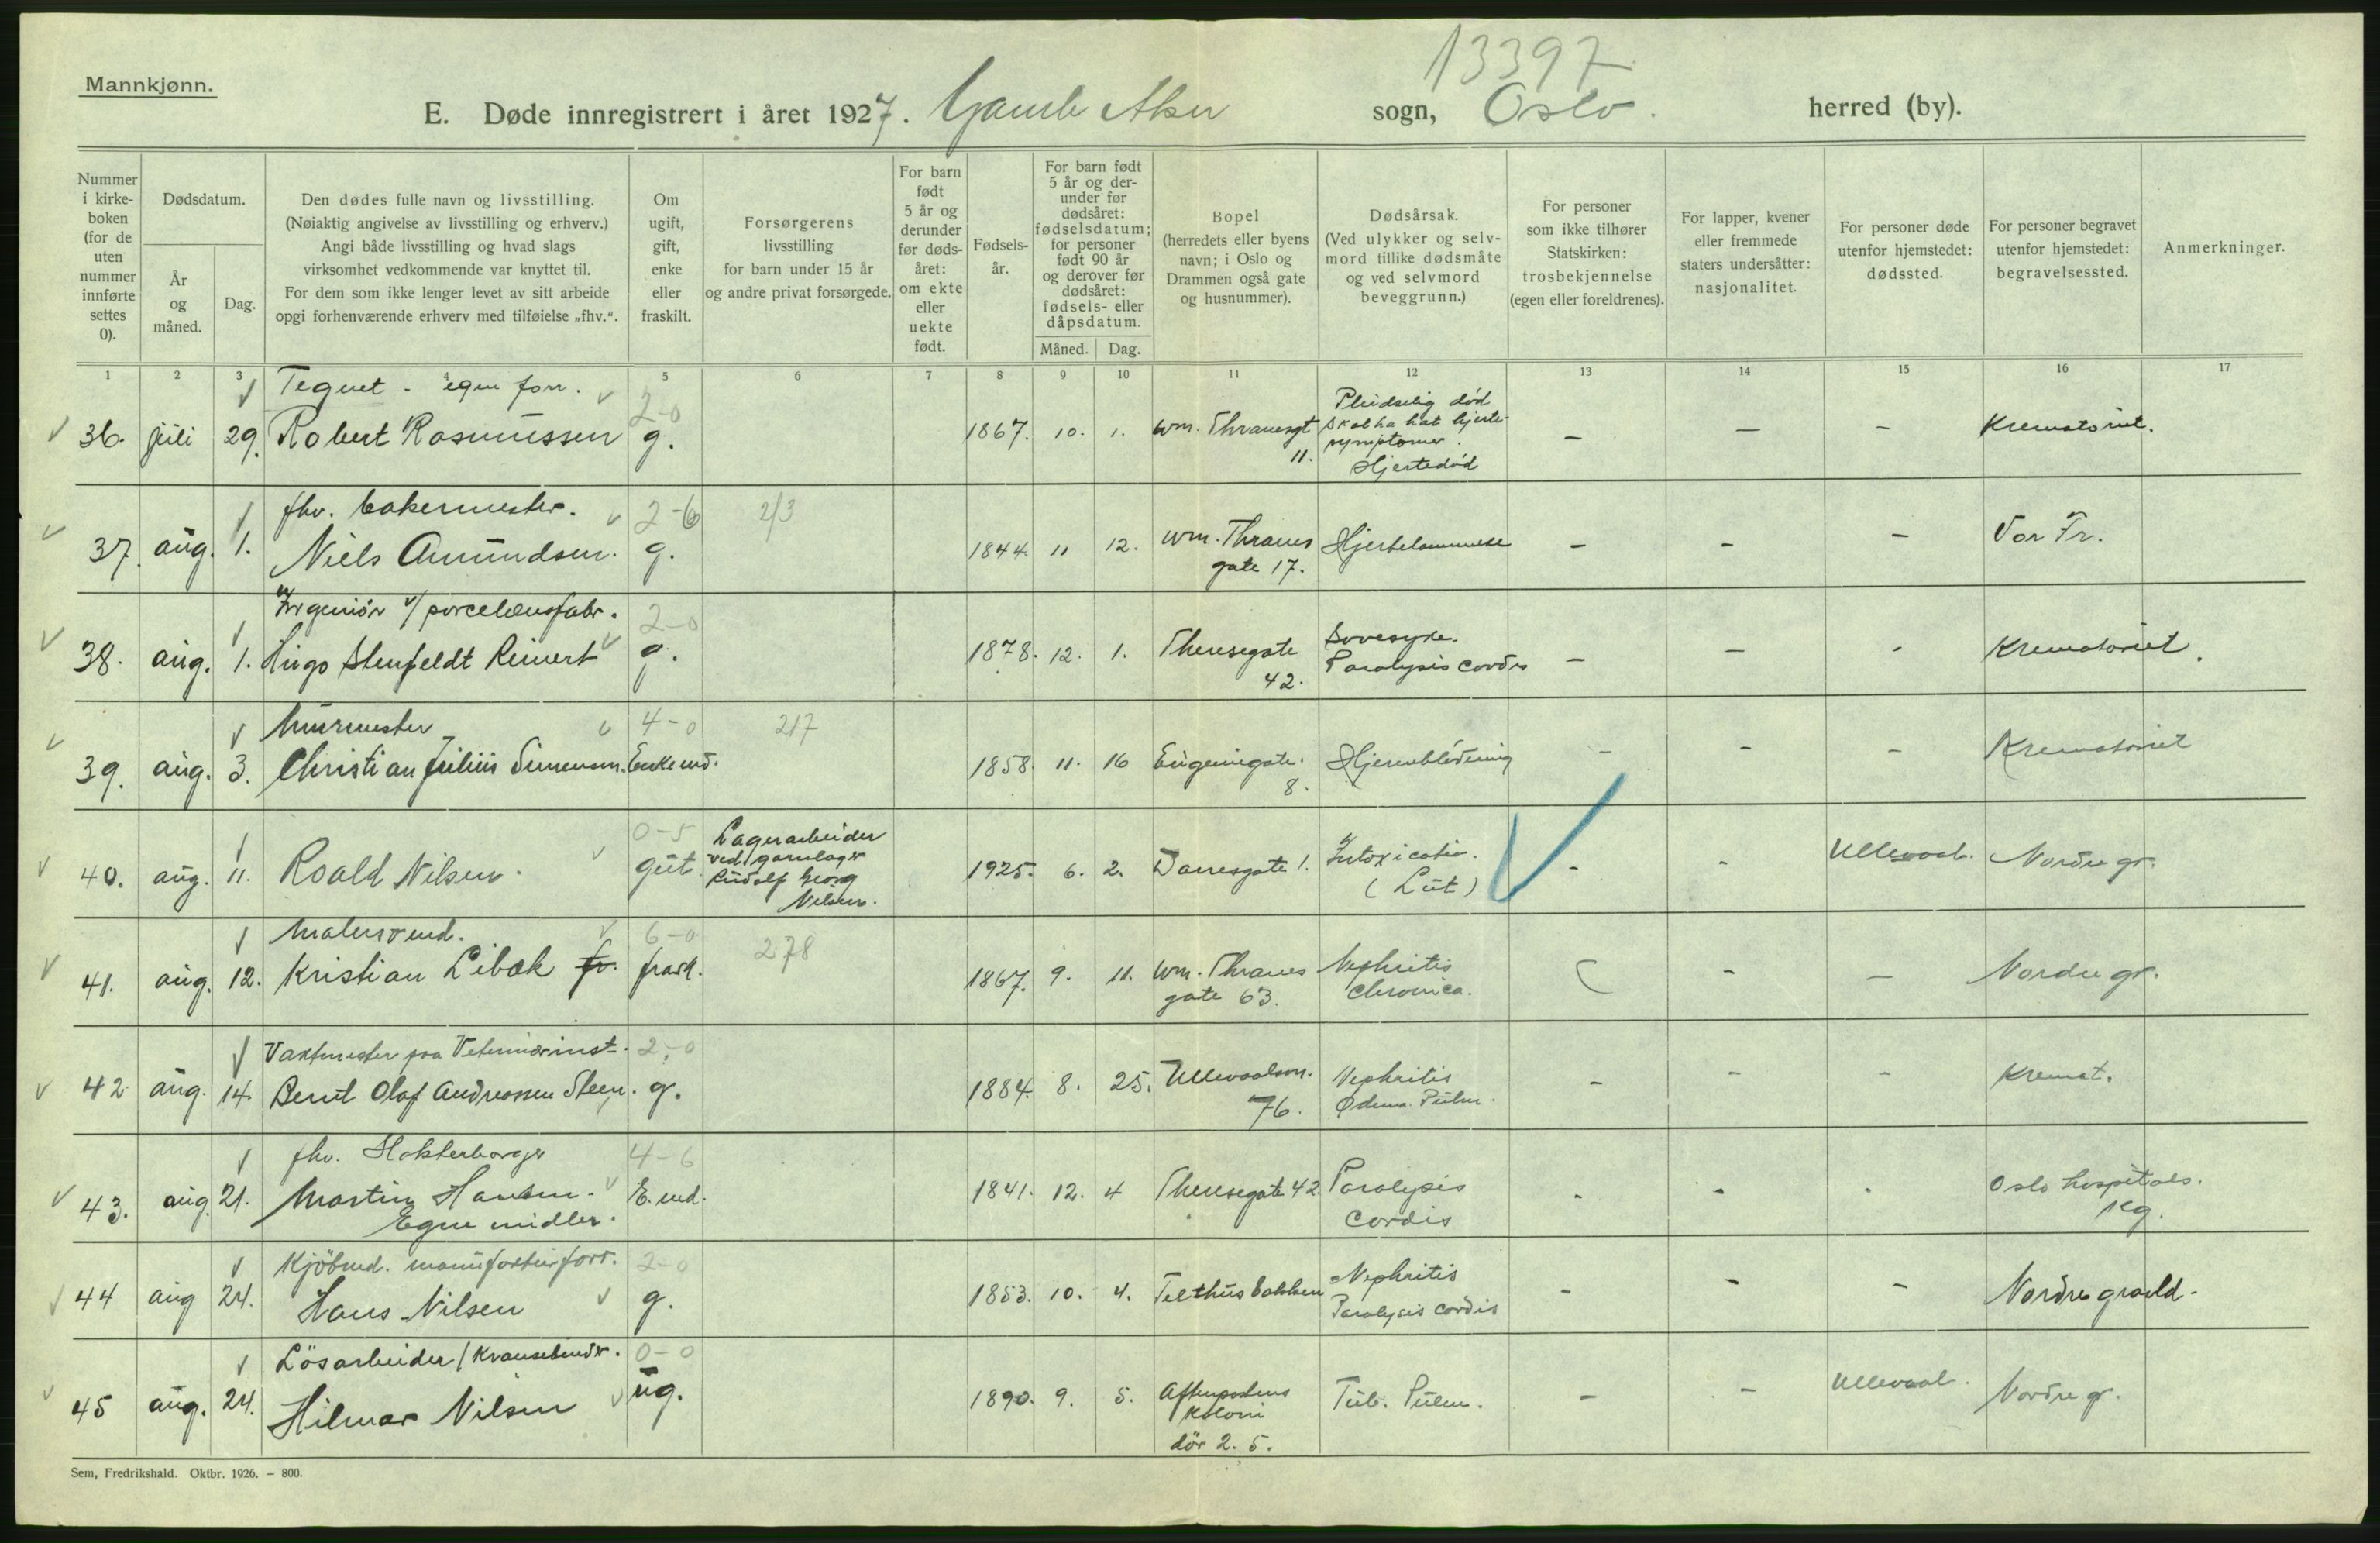 13397
Mannkjønn.
E. Døde innregistrert i året 1927. Gamle Aker sogn, Oslo. herred (by).
Nummer i kirke- boken (for de uten nummer innførte settes 0).
Dødsdatum.
År og måned.
Dag.
Den dødes fulle navn og livsstilling.
(Nøiaktig angivelse av livsstilling og erhverv.)
Angi både livsstilling og hvad slags
virksomhet vedkommende var knyttet til.
For dem som ikke lenger levet av sitt arbeide
opgi forhenværende erhverv med tilføielse „fhv.“.
Om ugift, gift, enke eller fraskilt.
Forsørgerens
livsstilling
for barn under 15 år
og andre privat forsørgede.
For barn født 5 år og derunder før døds- året: om ekte eller uekte født.
Fødsels- år.
For barn født 5 år og der- under før dødsåret: fødselsdatum; for personer født 90 år og derover før dødsåret: fødsels- eller dåpsdatum.
Måned. Dag.
Bopel
(herredets eller byens
navn; i Oslo og
Drammen også gate
og husnummer).
Dødsårsak.
(Ved ulykker og selv-
mord tillike dødsmåte
og ved selvmord
beveggrunn.)
For personer
som ikke tilhører
Statskirken:
trosbekjennelse
(egen eller foreldrenes).
For lapper, kvener
eller fremmede
staters undersåtter:
nasjonalitet.
For personer døde
utenfor hjemstedet:
dødssted.
For personer begravet
utenfor hjemstedet:
begravelsessted.
Anmerkninger.
1 2 3 4 5 6 7 8 9 10 11 12 13 14 15 16 17
Tegnet - egen forr. 2-0
36. juli 29. Robert Rasmussen g. 1867. 10. 1. Wm. Thranesgt 11. Pludselig død Skal ha hat hjerte- symptomer. Hjertedød - - - Krematoriet.
fhv. bakermester. 2-6 2/3
37. aug. 1. Niels Amundsen. g. 1844. 11 12. Wm. Thranes gate 17. Hjertelammelse - - - Vor Fr.
Ingeniör v/ porcelænsfabr. 2-0
38. aug. 1. Hugo Stenfeldt Reinert g. 1878. 12. 1. Theresegate 42. Sovesyke. Paralysis cordis - - - Krematoriet.
Murmester 4-0 217
39. aug. 3. Christian Julius Simensen. Enkemd. 1858. 11. 16 Eugeniegate. 8. Hjerneblødning - - - Krematoriet
0-5
40. aug. 11. Roald Nilsen. gut Lagerarbeider ved garnlager Rudolf Georg Nilsen. 1925. 6. 2. Darresgate 1. Intoxicatio. (Lut) - - Ullevaal. Nordre gr.
Malersvend. 6-0 278
41. aug. 12. Kristian Libæk fr. frask. 1867. 9. 11. Wm. Thranes gate 63. Nephritis chronica. - - Nordre gr.
Vaktmester paa Veterinærinst. 2-0
42 aug. 14. Bernt Olaf Andreassen Steen. g. 1884. 8. 25. Ullevaalsvn. 76. Nephritis Ødema. Pulm. - - - Kremat.
fhv. Hokkerborger 4-6
43. aug. 21. Martin Hansen. E.md. 1841. 12. 4 Theresegate 42. Paralysis cordis - - - Oslo hospitals. kg.
Egne midler.
Kjöbmd. manufakturforr. 2-0
44 aug 24. Hans Nilsen g. 1853. 10. 4. Telthusbakken Nephritis Paralysis cordis - - - Nordre gravld.
Lösarbeider / Kransebinder. 0-0
45 aug. 24. Hilmar Nilsen ug. 1890. 9. 5. Aftenpostens Koloni dör 2. 5. Tub. Pulm. - - Ullevaal. Nordre gr.
Sem, Fredrikshald. Oktbr. 1926. - 800.